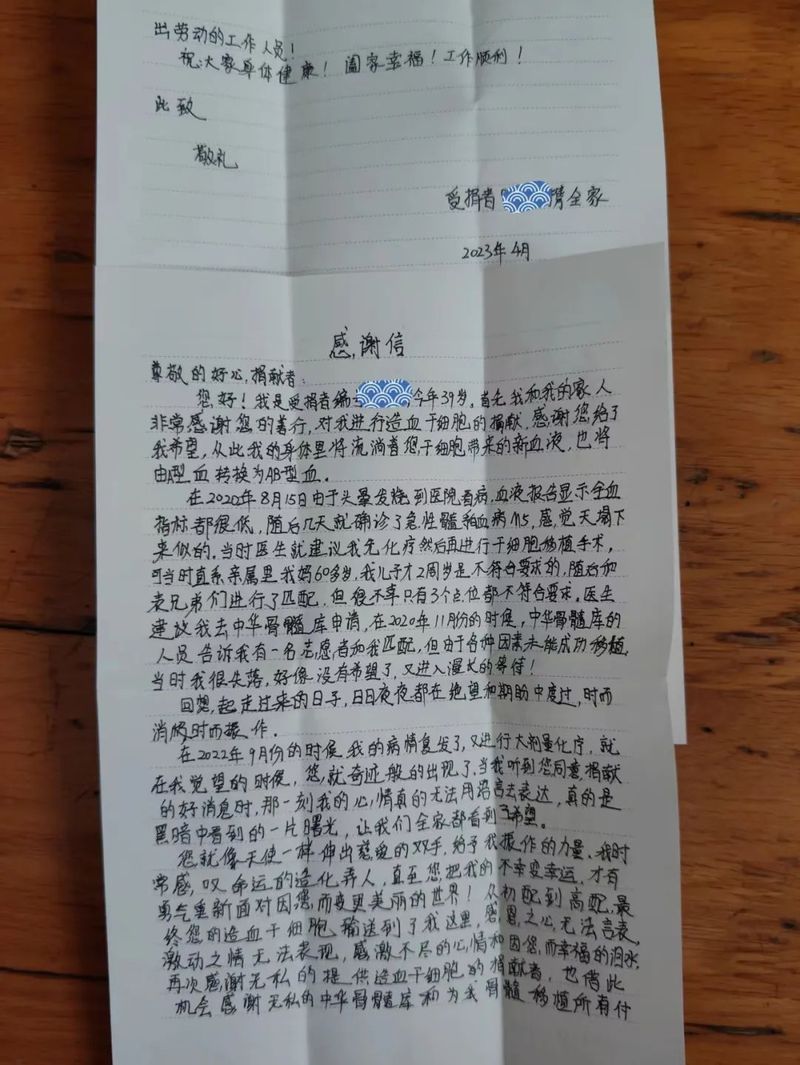 出劳动的工作人员！
祝大家身体健康！阖家幸福！工作顺利！
此致
敬礼
受捐者 情全家
2023年4月
感谢信
尊敬的好心捐献者：
您好！我是受捐者编 今年39岁。首先我和我的家人
非常感谢您的善行，对我进行造血干细胞的捐献，感谢您给了
我希望，从此我的身体里将流淌着您干细胞带来的新血液，也将
由A型血转换为AB型血。
在2020年8月15日由于头晕发烧到医院看病，血液报告显示全血
指标都很低，随后几天就确诊了急性髓和血病M5，感觉天塌下
来似的。当时医生就建议我先化疗然后再进行干细胞移植手术，
可当时直系亲属里我妈60多岁，我儿子才2周岁是不符合要求的，随后和
表兄弟们进行了匹配，但很不幸只有3个点位都不符合要求。医生
建议我去中华骨髓库申请，在2020年11月份的时候，中华骨髓库的
人员告诉我有一名志愿者和我匹配，但由于各种因素未能成功移植，
当时我很失落，好像没有希望了，又进入漫长的等待！
回想起走过来的日子，日日夜夜都在绝望和期盼中度过，时而
消极时而振作。
在2022年9月份的时候，我的病情复发了，又进行大剂量化疗，就
在我觉望的时侯，您就奇迹般的出现了，当我听到您同意捐献
的好消息时，那一刻我的心情真的无法用语言去表达，真的是
黑暗中看到的一片曙光，让我们全家都看到了希望。
您就像天使一样伸出慈爱的双手，给予我振作的力量。我时
常感叹命运的造化弄人，直至您把我的不幸变幸运，才有
勇气重新面对因您而变更美丽的世界！从初配到高配，最
终您的造血干细胞输送到了我这里，感恩之心无法言表，
激动之情无法表现，感激不尽的心情和因您而幸福的泪水，
再次感谢无私的提供造血干细胞的捐献者，也借此
机会感谢无私的中华骨髓库和为我骨髓移植所有付